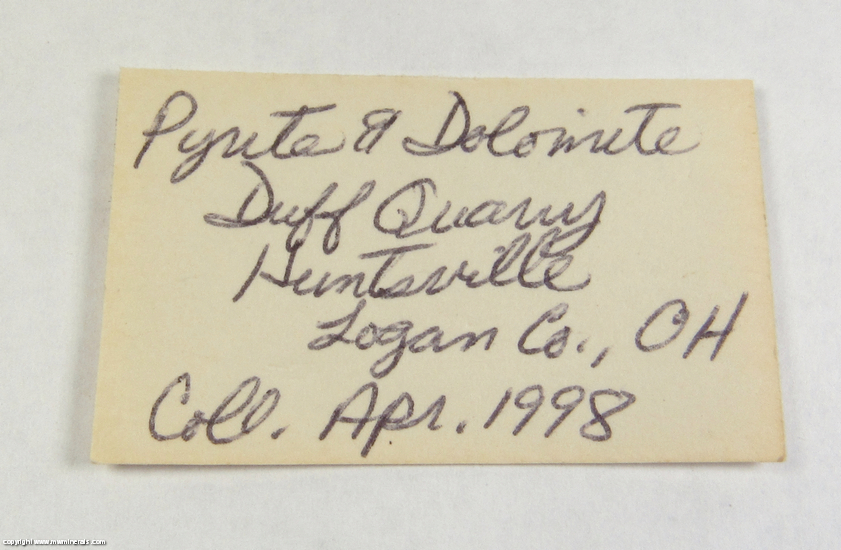 Pyrite & Dolomite
Duff Quarry
Huntsville
Logan Co., OH
Coll. Apr. 1998
copyright www.mwminerals.com